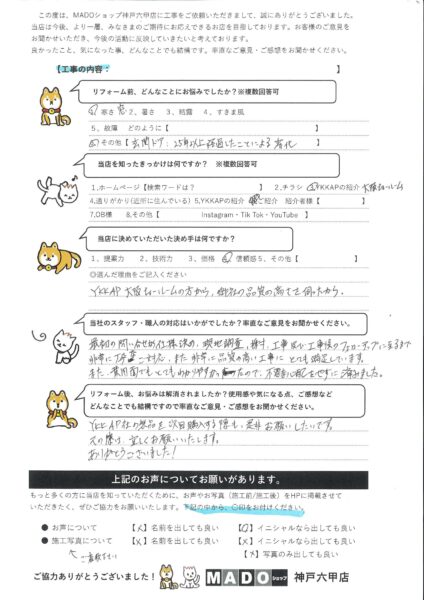 この度は、MADOショップ神戸六甲店に工事をご依頼いただきまして、誠にありがとうございました。
当店は今後、より一層、みなさまのご期待にお応えできるお店を目指しております。お客様のご意見を
お聞かせいただき、今後の活動に反映していきたいと考えております。
良かったこと、気になった事、どんなことでも結構です。率直なご意見・ご感想をお聞かせください。
【工事の内容： 】
リフォーム前、どんなことにお悩みでしたか？※複数回答可
1、寒さ 2、暑さ 3、結露 4、すきま風
5、故障 どのように【 】
6、その他【玄関ドア：25年以上経過したことによる劣化 】
当店を知ったきっかけは何ですか？ ※複数回答可
1,ホームページ【検索ワードは？ 】 2,チラシ 3,YKKAPの紹介 大阪ショールーム
4,通りがかり(近所に住んでいる) 5,YKKAPの紹介 6,ご紹介 紹介者様【 】
7,OB様 8,その他【 Instagram・Tik Tok・YouTube 】
当店に決めていただいた決め手は何ですか？
1、提案力 2、技術力 3、価格 4、信頼感 5、その他【 】
◎選んだ理由をご記入ください
YKKAP 大阪ショールームの方から、御社の品質の高さを伺ったから。
当社のスタッフ・職人の対応はいかがでしたか？率直なご意見をお聞かせください。
最初の問い合せから仕様決め、現地調査、検討、工事及び工事後のフォローアップに至るまで
非常に丁寧なご対応、また非常に品質の高い工事にとても満足しています。
また、費用面でもとてもわかりやすかったので、不要な心配をせずに済みました。
リフォーム後、お悩みは解消されましたか？使用感や気になる点、ご感想など
どんなことでも結構ですので率直なご意見・ご感想をお聞かせください。
YKKAP社の製品を次回購入する際も、是非お願いしたいです。
その際は、宜しくお願いいたします。
ありがとうございました！
上記のお声についてお願いがあります。
もっと多くの方に当店を知っていただくために、お声やお写真（施工前/施工後）をHPに掲載させて
いただきたく、ぜひご協力をお願いいたします。下記の中から、〇印をお付けください。
● お声について 【X】名前を出しても良い 【〇】イニシャルなら出しても良い
● 施工写真について 【X】名前を出しても良い 【〇】イニシャルなら出しても良い
【X】写真のみ出しても良い
ご協力ありがとうございました！ MADOショップ 神戸六甲店